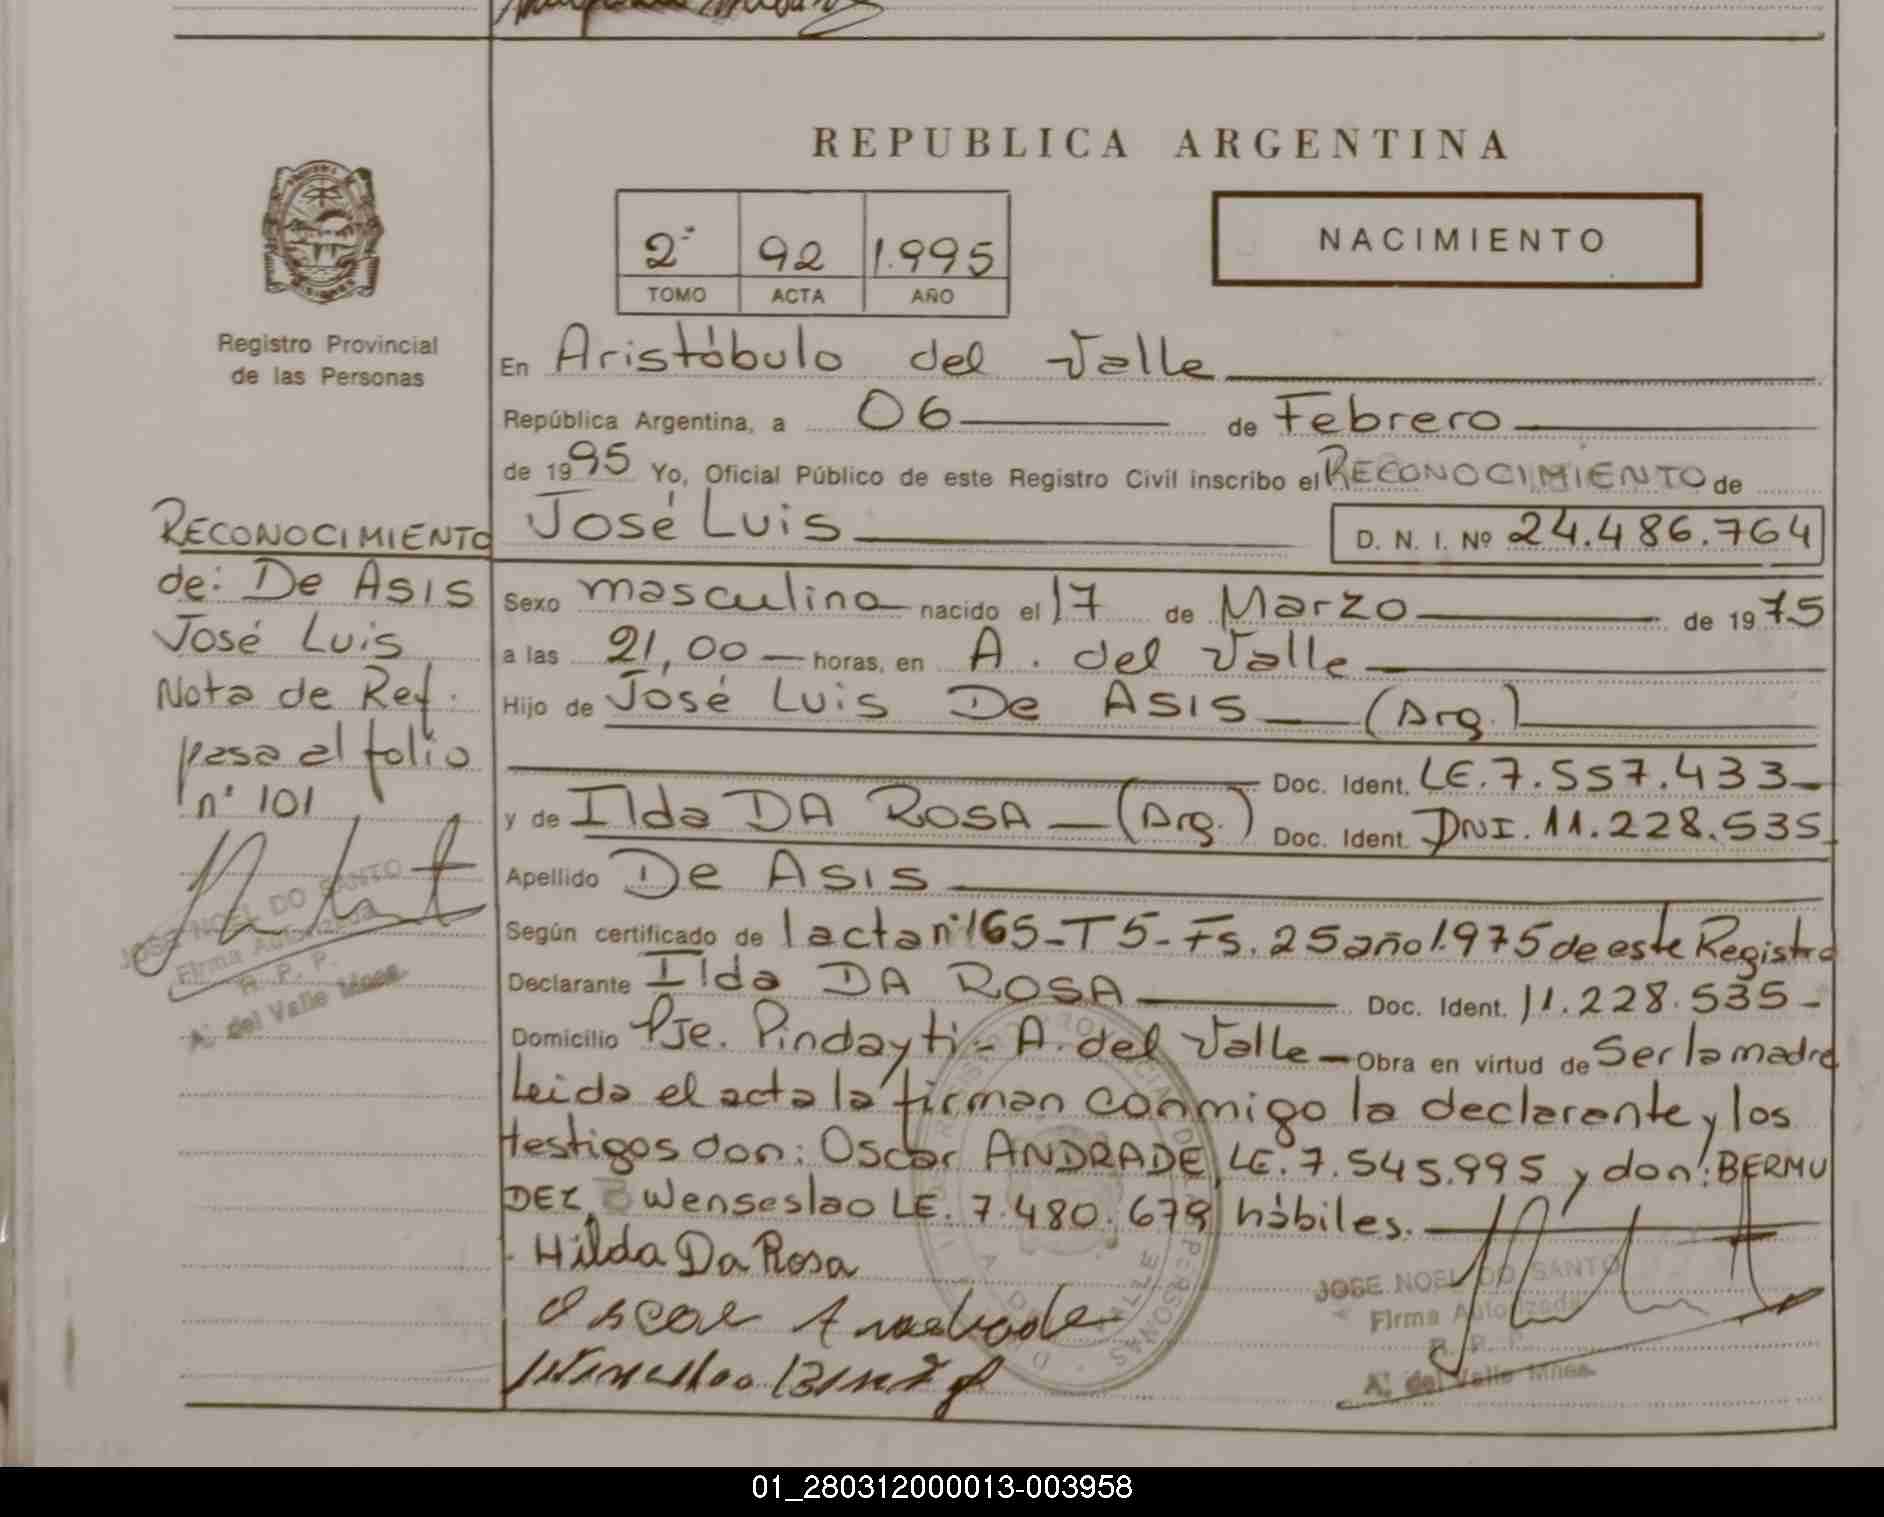 REPUBLICA ARGENTINA
2º 92 1.995
TOMO ACTA AÑO
NACIMIENTO
Registro Provincial
de las Personas
RECONOCIMIENTO
de: De Asis
José Luis
Nota de Ref.
pasa al folio
nº 101
JOSE NOEL DO SANTO
Firma Autorizada
R. P. P.
A. del Valle Mnes.
En Aristóbulo del Valle
República Argentina, a 06 de Febrero
de 1995 Yo, Oficial Público de este Registro Civil inscribo el RECONOCIMIENTO de
José Luis D. N. I. Nº 24.486.764
Sexo masculino nacido el 17 de Marzo de 1975
a las 21,00 horas, en A. del Valle
Hijo de José Luis De Asis (Arg.)
Doc. Ident. LE. 7.557.433
y de Ilda DA ROSA (Arg.) Doc. Ident. DNI. 11.228.535
Apellido De Asis
Según certificado de l acta nº 165 - T 5 - Fs. 25 año 1.975 de este Registro
Declarante Ilda DA ROSA Doc. Ident. 11.228.535 -
Domicilio Pje. Pindayti - A. del Valle - Obra en virtud de Ser la madre
Leida el acta la firman conmigo la declarante y los
testigos don: Oscar ANDRADE, LE. 7.545.995 y don: BERMU
DEZ, Wenseslao LE. 7.480.679 hábiles.
Hilda Da Rosa
Oscar Andrade
JOSE NOEL DO SANTO
Firma Autorizada
R. P. P.
A. del Valle Mnes.
01_280312000013-003958